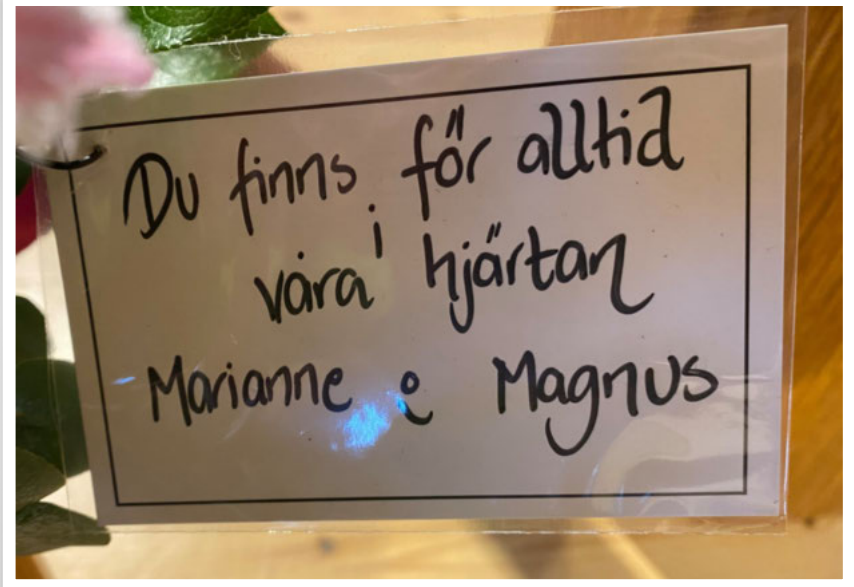 Du finns för alltid
i
våra hjärtan
Marianne & Magnus